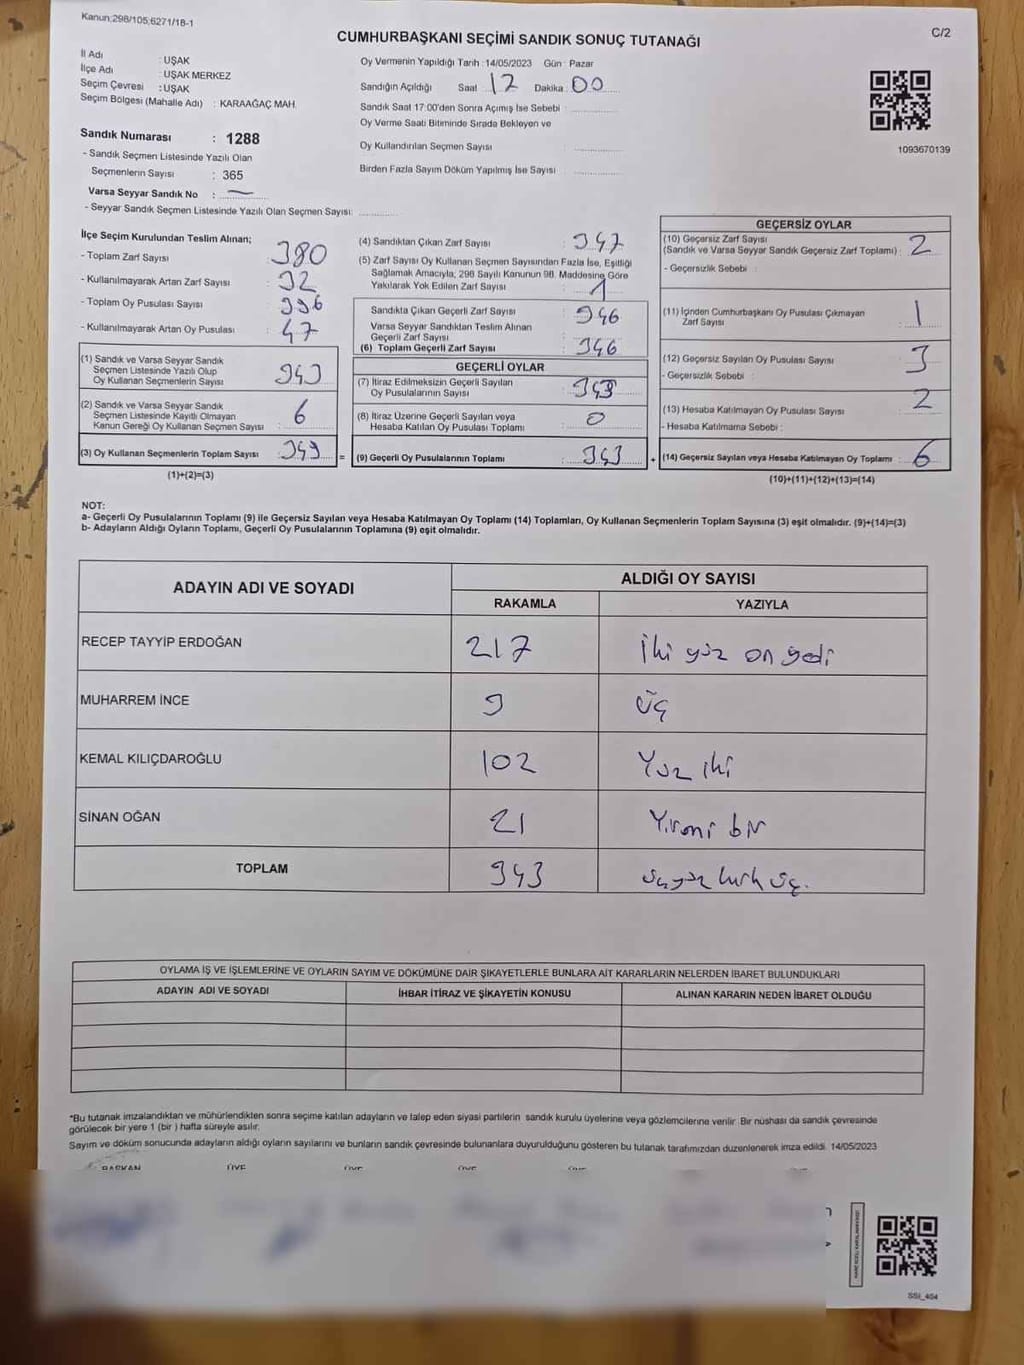 Kanun;298/105;6271/18-1
C/2
CUMHURBAŞKANI SEÇİMİ SANDIK SONUÇ TUTANAĞI
İl Adı : UŞAK
İlçe Adı : UŞAK MERKEZ
Seçim Çevresi : UŞAK
Seçim Bölgesi (Mahalle Adı) : KARAAĞAÇ MAH.
Sandık Numarası : 1288
- Sandık Seçmen Listesinde Yazılı Olan
Seçmenlerin Sayısı : 365
Varsa Seyyar Sandık No : —
- Seyyar Sandık Seçmen Listesinde Yazılı Olan Seçmen Sayısı:
Oy Vermenin Yapıldığı Tarih :14/05/2023 Gün : Pazar
Sandığın Açıldığı Saat 17 Dakika : 00
Sandık Saat 17:00'den Sonra Açımış İse Sebebi :
Oy Verme Saati Bitiminde Sırada Bekleyen ve
Oy Kullandırılan Seçmen Sayısı :
Birden Fazla Sayım Döküm Yapılmış İse Sayısı :
1093670139
İlçe Seçim Kurulundan Teslim Alınan;
- Toplam Zarf Sayısı : 380
- Kullanılmayarak Artan Zarf Sayısı : 32
- Toplam Oy Pusulası Sayısı : 396
- Kullanılmayarak Artan Oy Pusulası : 47
(1) Sandık ve Varsa Seyyar Sandık
Seçmen Listesinde Yazılı Olup
Oy Kullanan Seçmenlerin Sayısı : 343
(2) Sandık ve Varsa Seyyar Sandık
Seçmen Listesinde Kayıtlı Olmayan
Kanun Gereği Oy Kullanan Seçmen Sayısı : 6
(3) Oy Kullanan Seçmenlerin Toplam Sayısı : 349 =
(1)+(2)=(3)
(4) Sandıktan Çıkan Zarf Sayısı : 347
(5) Zarf Sayısı Oy Kullanan Seçmen Sayısından Fazla İse, Eşitliği
Sağlamak Amacıyla, 298 Sayılı Kanunun 98. Maddesine Göre
Yakılarak Yok Edilen Zarf Sayısı : 1
Sandıkta Çıkan Geçerli Zarf Sayısı : 346
Varsa Seyyar Sandıktan Teslim Alınan
Geçerli Zarf Sayısı :
(6) Toplam Geçerli Zarf Sayısı : 346
GEÇERLİ OYLAR
(7) İtiraz Edilmeksizin Geçerli Sayılan
Oy Pusulalarının Sayısı : 343
(8) İtiraz Üzerine Geçerli Sayılan veya
Hesaba Katılan Oy Pusulası Toplamı : 0
(9) Geçerli Oy Pusulalarının Toplamı : 343 +
GEÇERSİZ OYLAR
(10) Geçersiz Zarf Sayısı
(Sandık ve Varsa Seyyar Sandık Geçersiz Zarf Toplamı) : 2
- Geçersizlik Sebebi :
(11) İçinden Cumhurbaşkanı Oy Pusulası Çıkmayan
Zarf Sayısı : 1
(12) Geçersiz Sayılan Oy Pusulası Sayısı : 3
- Geçersizlik Sebebi :
(13) Hesaba Katılmayan Oy Pusulası Sayısı : 2
- Hesaba Katılmama Sebebi :
(14) Geçersiz Sayılan veya Hesaba Katılmayan Oy Toplamı : 6
(10)+(11)+(12)+(13)=(14)
NOT:
a- Geçerli Oy Pusulalarının Toplamı (9) ile Geçersiz Sayılan veya Hesaba Katılmayan Oy Toplamı (14) Toplamları, Oy Kullanan Seçmenlerin Toplam Sayısına (3) eşit olmalıdır. (9)+(14)=(3)
b- Adayların Aldığı Oyların Toplamı, Geçerli Oy Pusulalarının Toplamına (9) eşit olmalıdır.
ADAYIN ADI VE SOYADI
ALDIĞI OY SAYISI
RAKAMLA YAZIYLA
RECEP TAYYİP ERDOĞAN 217 İki yüz on yedi
MUHARREM İNCE 3 üç
KEMAL KILIÇDAROĞLU 102 Yüz iki
SİNAN OĞAN 21 Yirmi bir
TOPLAM 343 üçyüz kırk üç.
OYLAMA İŞ VE İŞLEMLERİNE VE OYLARIN SAYIM VE DÖKÜMÜNE DAİR ŞİKAYETLERLE BUNLARA AİT KARARLARIN NELERDEN İBARET BULUNDUKLARI
ADAYIN ADI VE SOYADI İHBAR İTİRAZ VE ŞİKAYETİN KONUSU ALINAN KARARIN NEDEN İBARET OLDUĞU
*Bu tutanak imzalandıktan ve mühürlendikten sonra seçime katılan adayların ve talep eden siyasi partilerin sandık kurulu üyelerine veya gözlemcilerine verilir. Bir nüshası da sandık çevresinde
görülecek bir yere 1 (bir ) hafta süreyle asılır.
Sayım ve döküm sonucunda adayların aldığı oyların sayılarını ve bunların sandık çevresinde bulunanlara duyurulduğunu gösteren bu tutanak tarafımızdan düzenlenerek imza edildi. 14/05/2023
BAŞKAN ÜYE ÜYE ÜYE ÜYE
SSİ_404